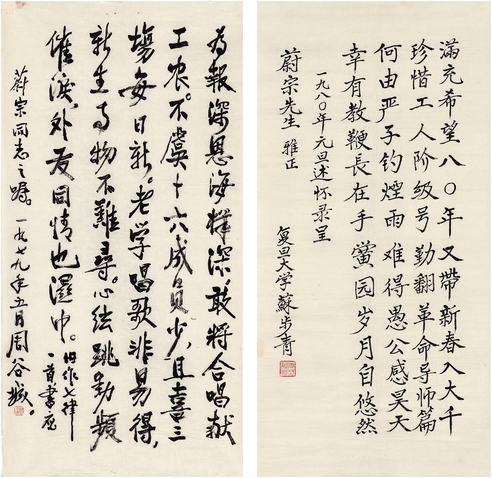 滿充希望八〇年又帶新春入大千
珍惜工人阶级号勤翻革命导师篇
何由严子钓煙雨难得愚公感昊天
幸有教鞭長在手黉园岁月自悠然
一九八〇年元旦述怀录呈
蔚宗先生 雅正
复旦大学蘇步青
为報深恩海樣深敢將合唱献
工农。不虞十六成員少，且喜三
場每日新。老学唱歌非易得，
新生事物不難尋。心弦跳动頻
催淚，外友同情也濕巾。旧作七律
一首書应
蔚宗同志之嘱。一九七九年五月周谷城。